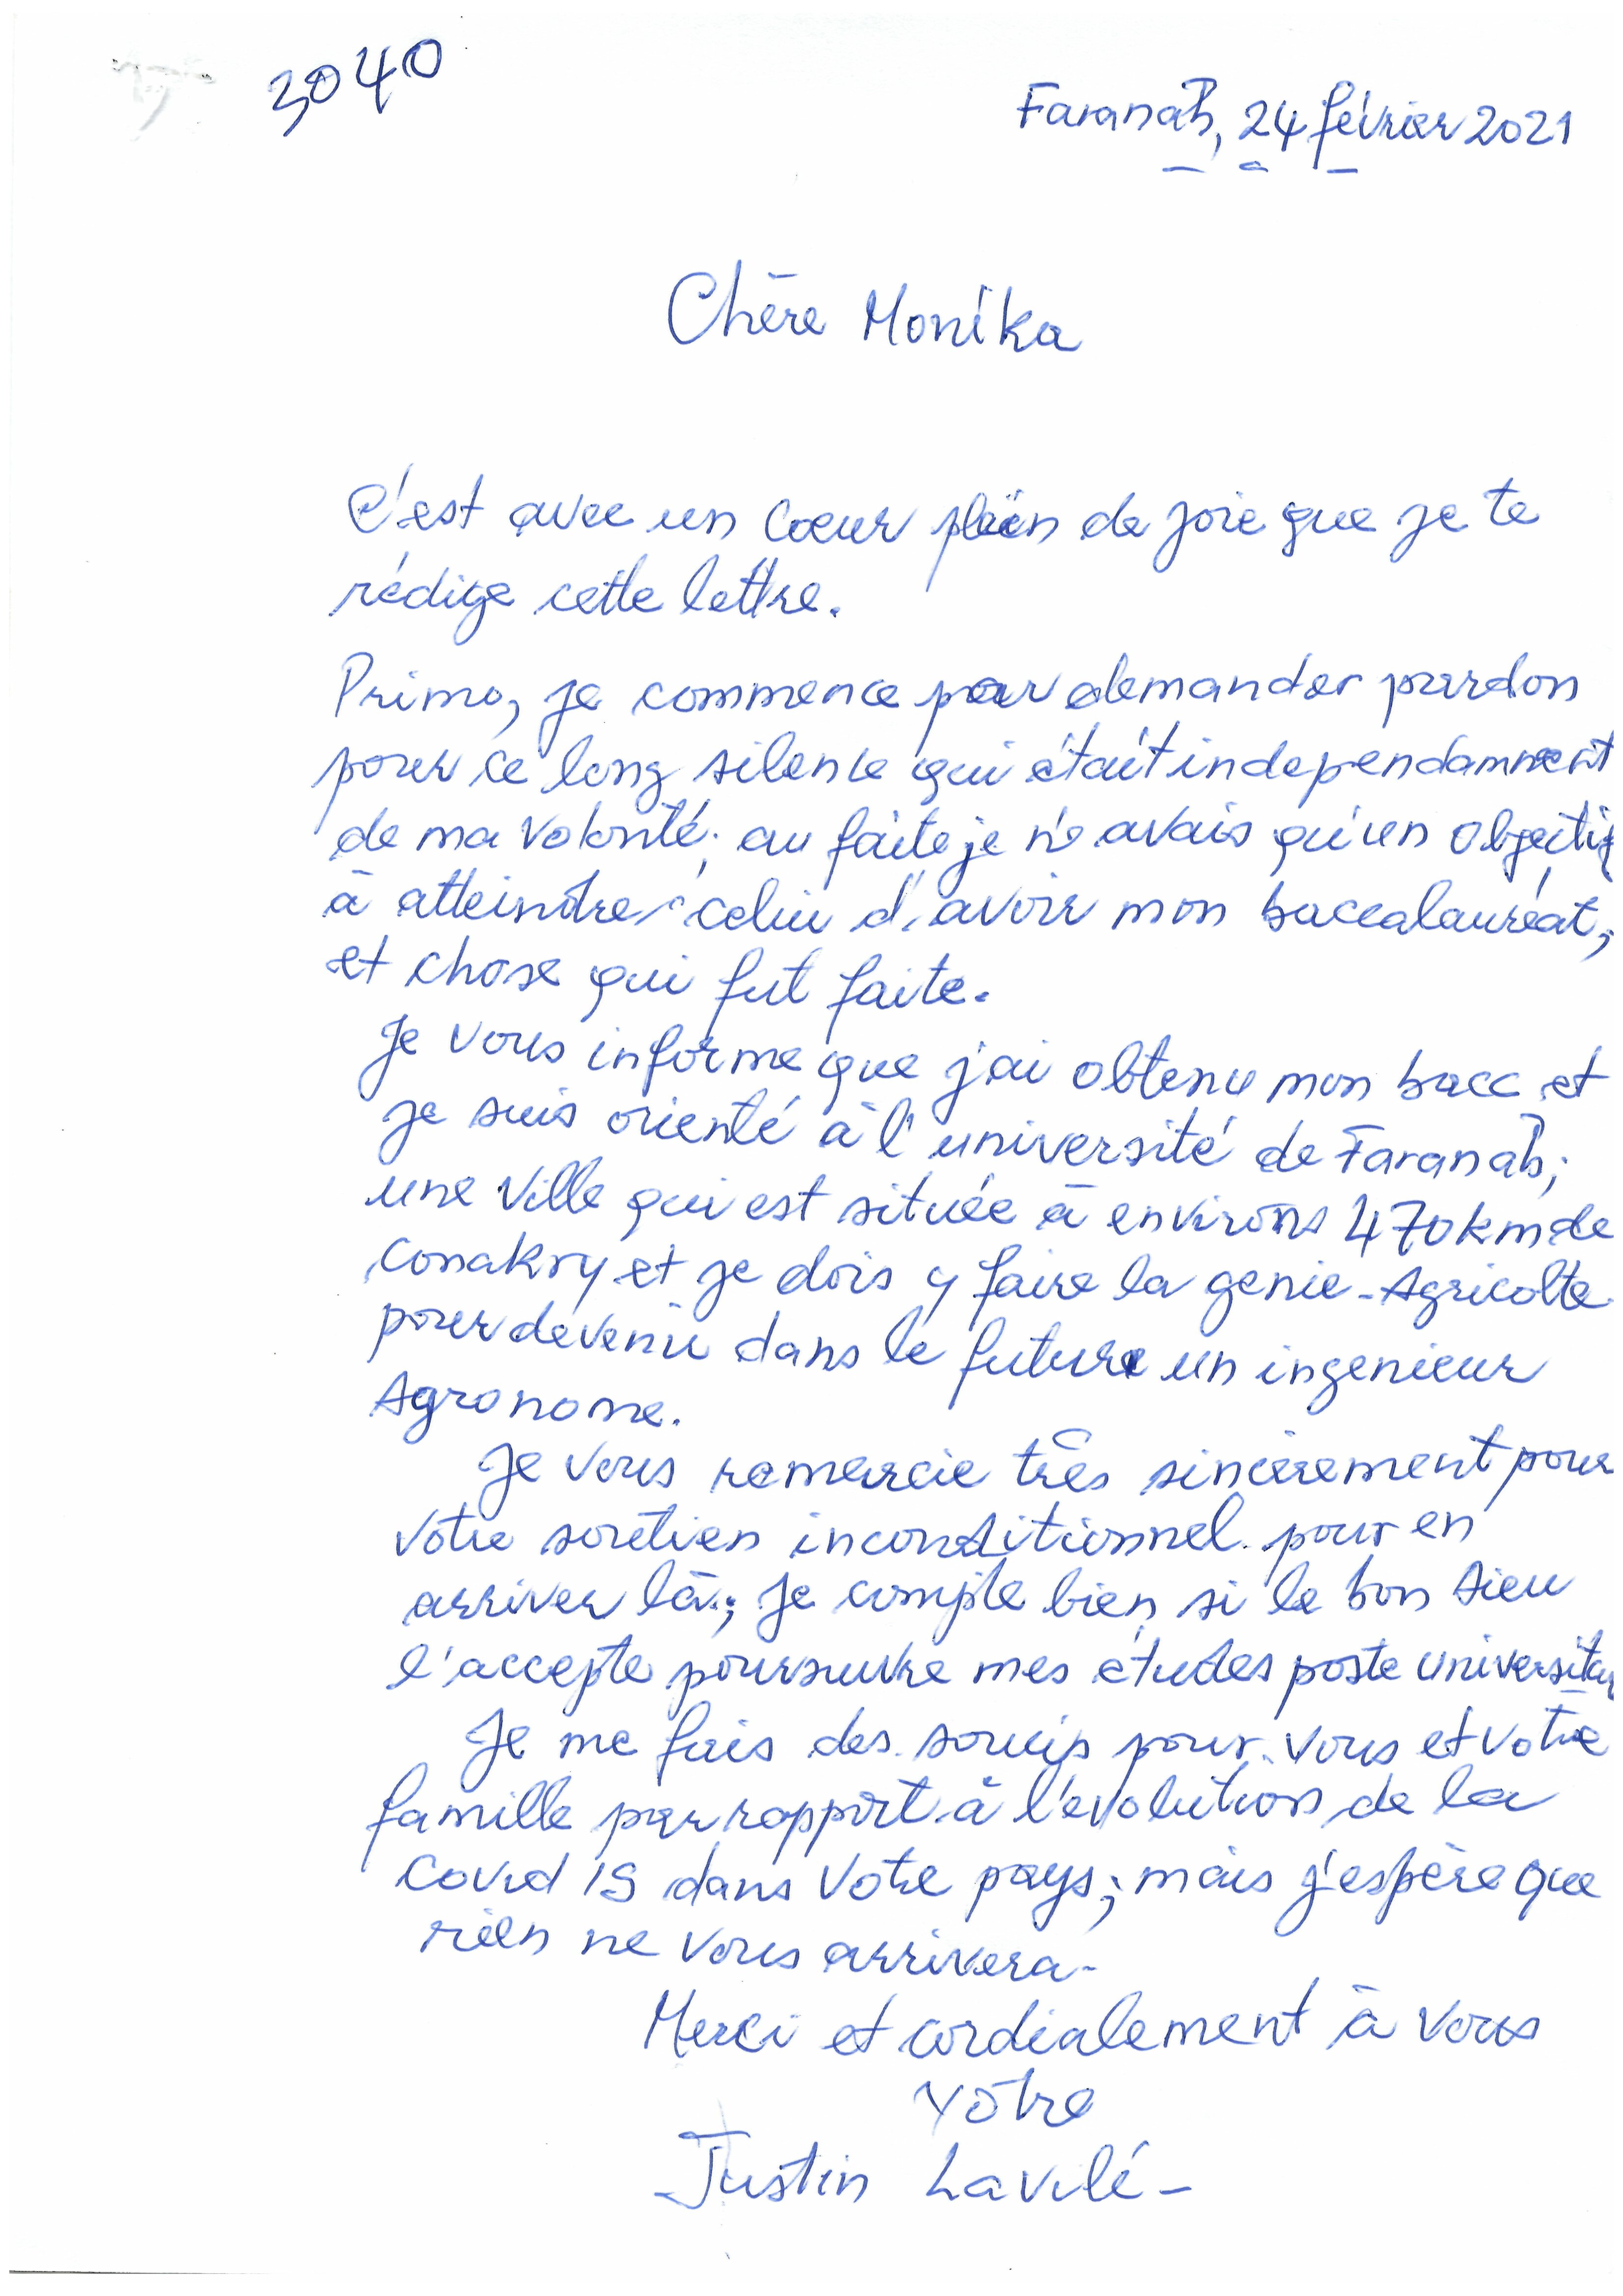 3040
Faranah, 24 février 2021
Chère Monika
C'est avec un coeur plein de joie que je te
rédige cette lettre.
Primo, je commence par demander pardon
pour ce long silence qui était independamment
de ma volonté; au faite je n'avais qu'un objectif
à atteindre celui d'avoir mon baccalauréat,
et chose qui fut faite.
Je vous informe que j'ai obtenu mon bacc et
je suis orienté à l'université de Faranah;
une ville qui est située à environs 470km de
Conakry et je dois y faire la genie-Agricolte
pour devenir dans le future un ingenieur
Agronome.
Je vous remercie très sincèrement pour
votre soutien inconditionnel pour en
arriver là; je compte bien si le bon Dieu
l'accepte poursuivre mes études poste universitai
Je me fais des soucis pour vous et votre
famille par rapport à l'evolution de la
Covid 19 dans Votre pays; mais j'espère que
rien ne vous arrivera-
Merci et cordialement à vous
Vôtre
Justin Lavilé-